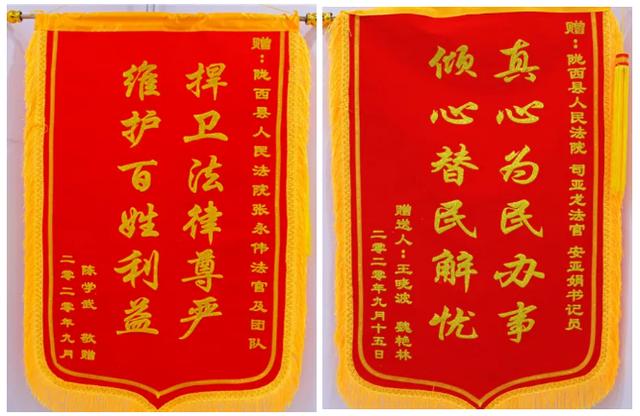 赠：陇西县人民法院张永伟法官及团队
捍卫法律尊严
维护百姓利益
陈学武 敬赠
二零二零年九月
赠：陇西县人民法院 司亚龙法官 安亚娟书记员
真心为民办事
倾心替民解忧
赠送人：王晓波 魏艳林
二零二零年九月十五日